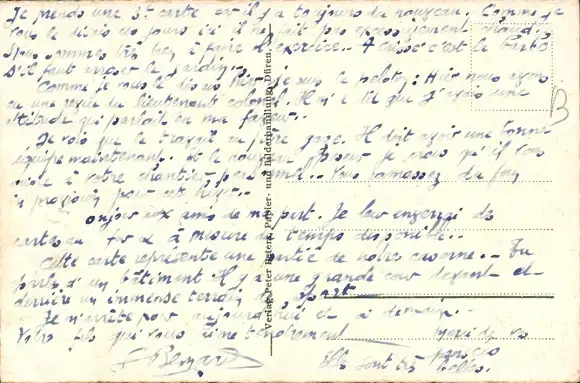 Je prends une 3e carte car il y a toujours du nouveau. Comme je
vous le disais ces jours ici il ne fait pas excessivement chaud.
Nous sommes très bien à faire l'exercice. A Cuisse c'est la barbe
s'il faut arroser le jardin.
Comme je vous le dis hier je suis le peloton: Hier nous avons
eu une revue du lieutenant colonel. Il m'a dit que j'avais une
attitude qui parlait en ma faveur.
Je vois que le travail au père gaze. Il doit avoir une bonne
équipe maintenant. et le nouveau je vois qu'il
à votre chantier pas mal. Vous ramassez du foin
en provision pour cet hiver.
onjour aux amis de ma part. Je leur enverrai des
cartes au fur et à mesure de temps disponible.
Cette carte représente une partie de notre caserne. Tu
parles d'un bâtiment il y a une grande cour devant et
derrière un immense terrain de sport
Je m'arrête pour aujourd'hui et à demain.
Votre fils qui vous aime tendrement
Bernard
Merci de vos
pensées
Elles sont très belles.
B
Verlag Peter Peters, Papier- und Bilderhandlung, Düren.